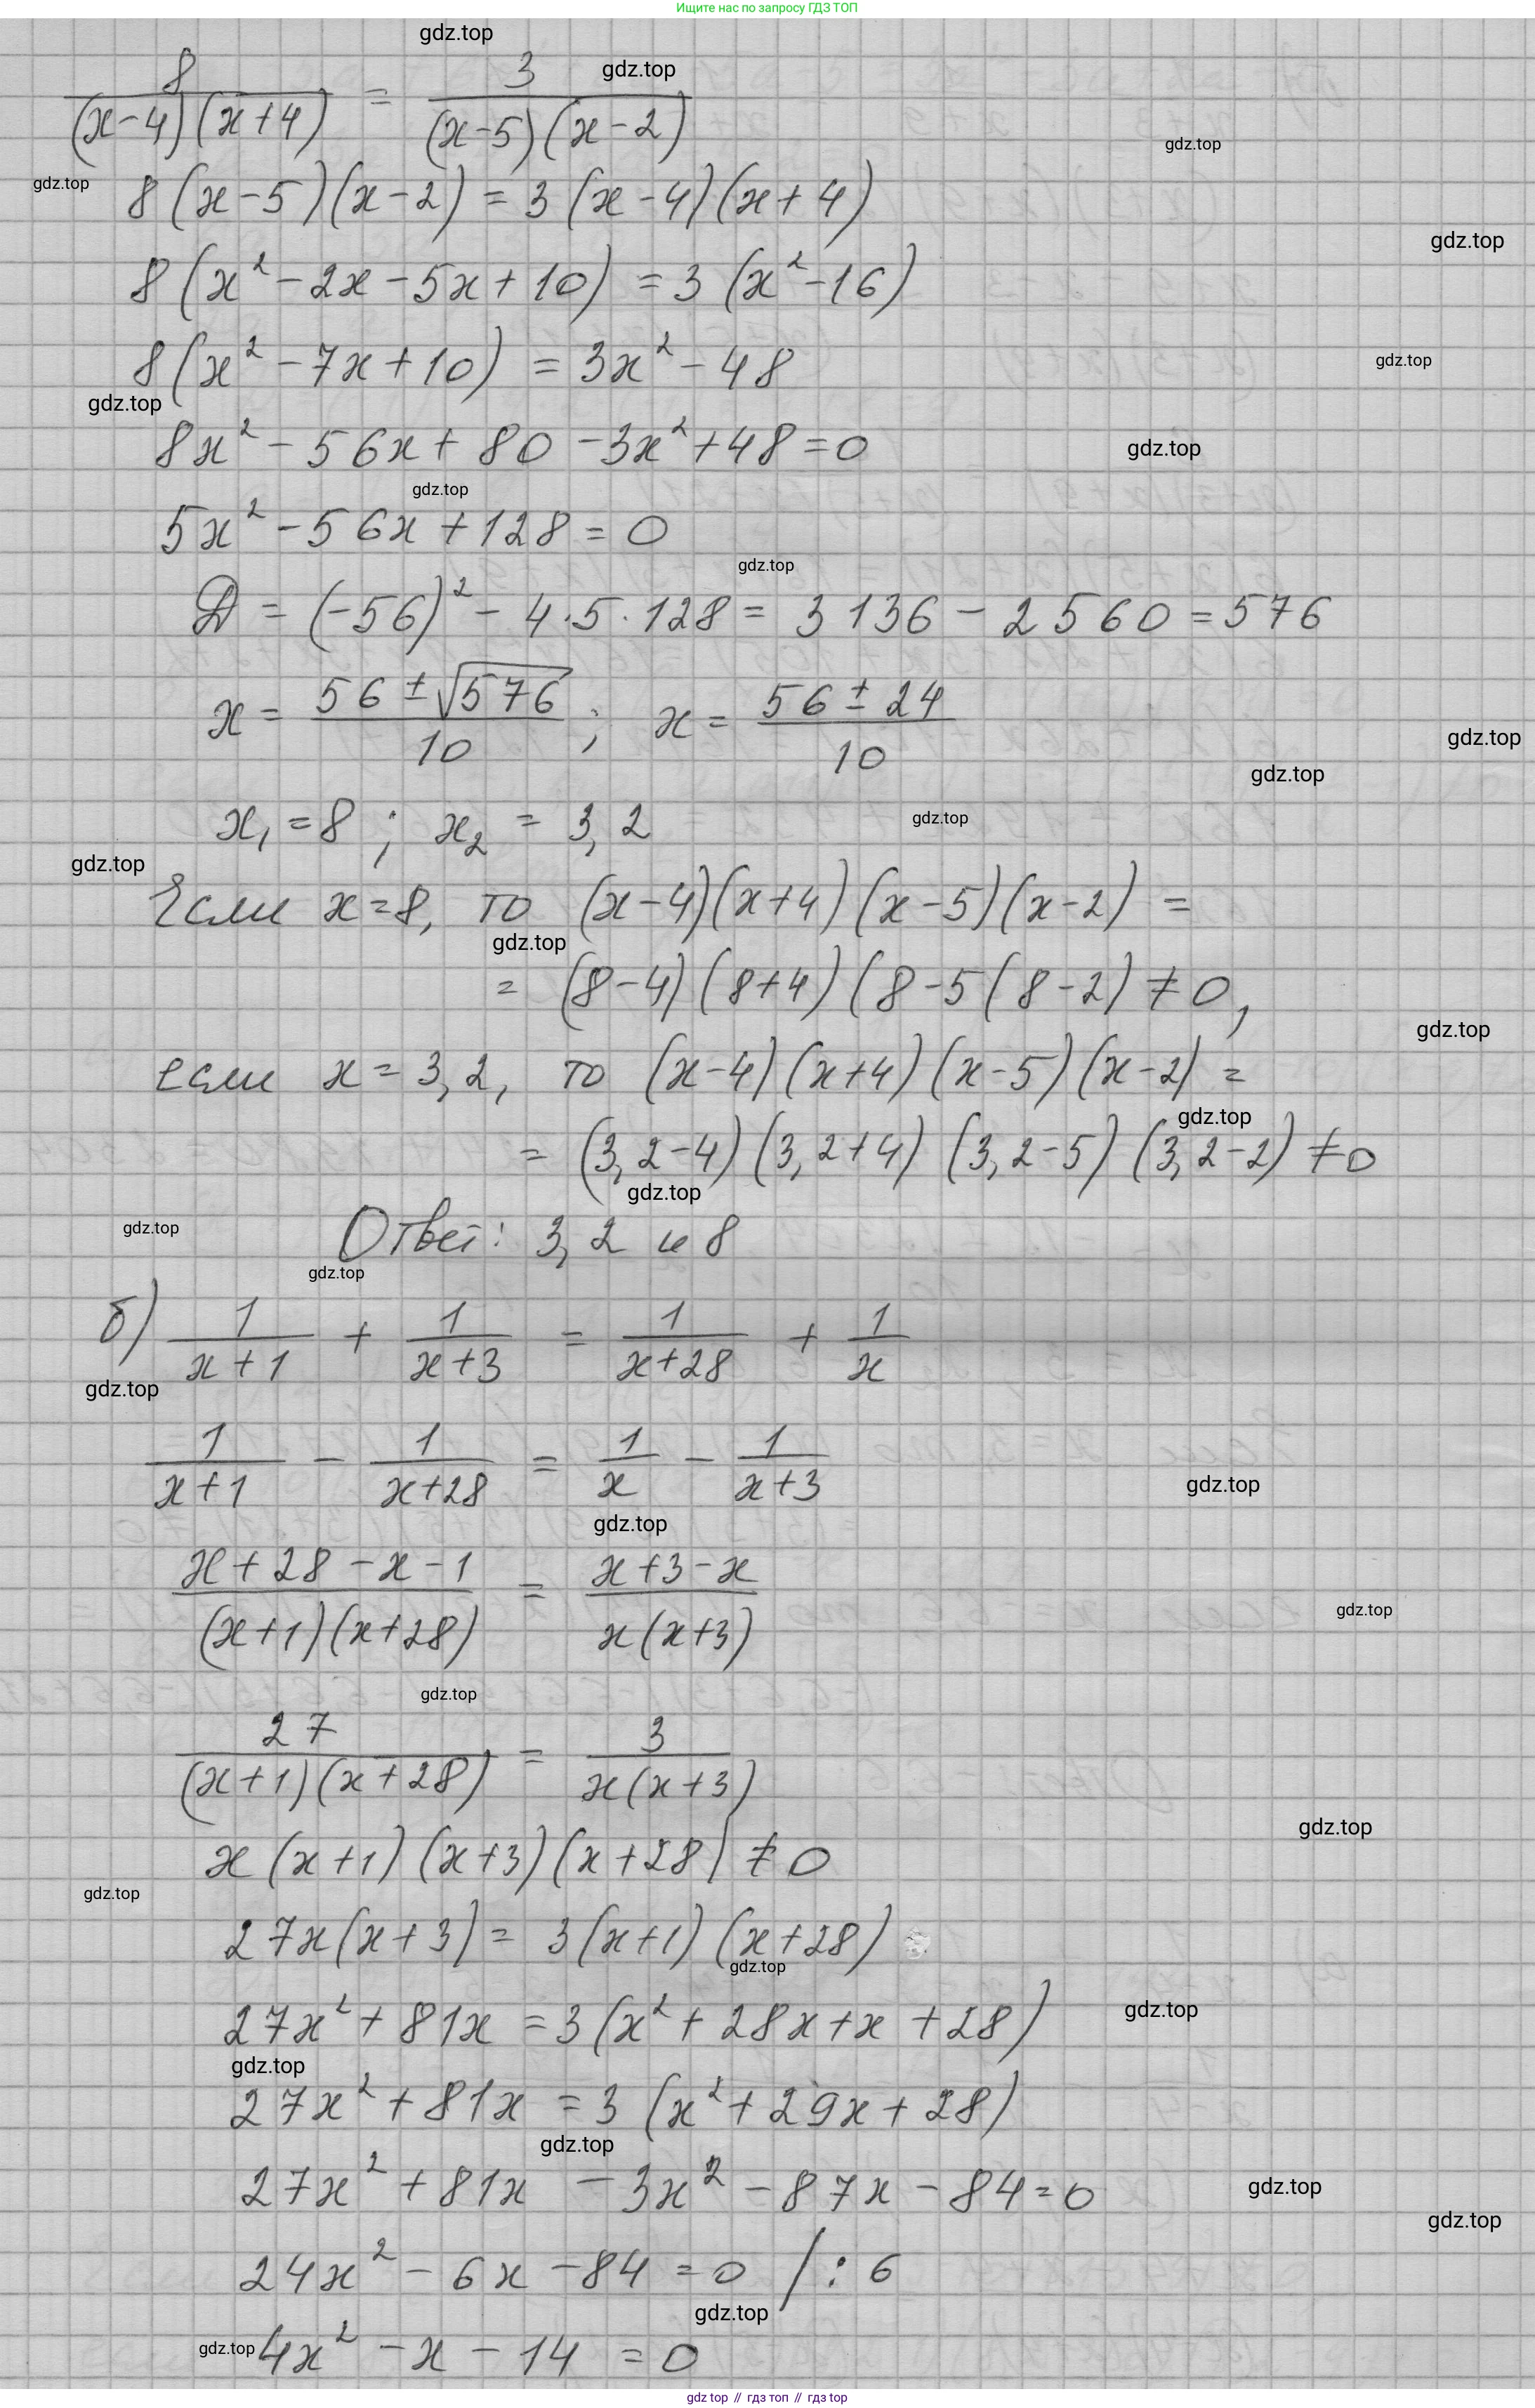 Ищите нас по запросу ГДЗ ТОП
gdz.top
8/((x-4)(x+4)) = 3/((x-5)(x-2))
gdz.top
gdz.top
gdz.top
8(x-5)(x-2) = 3(x-4)(x+4)
gdz.top
8(x²-2x-5x+10) = 3(x²-16)
8(x²-7x+10) = 3x²-48
gdz.top
gdz.top
8x²-56x+80-3x²+48=0
gdz.top
gdz.top
5x²-56x+128=0
gdz.top
D = (-56)²-4·5·128 = 3136-2560=576
x = (56±√576)/10; x = (56±24)/10
gdz.top
gdz.top
x₁=8; x₂ = 3,2
gdz.top
gdz.top
Если x=8, то (x-4)(x+4)(x-5)(x-2) =
gdz.top
= (8-4)(8+4)(8-5(8-2)≠0,
gdz.top
если x=3,2, то (x-4)(x+4)(x-5)(x-2) =
gdz.top
= (3,2-4)(3,2+4)(3,2-5)(3,2-2)≠0
gdz.top
gdz.top
Ответ: 3,2 и 8
gdz.top
б) 1/(x+1) + 1/(x+3) = 1/(x+28) + 1/x
gdz.top
1/(x+1) - 1/(x+28) = 1/x - 1/(x+3)
gdz.top
gdz.top
(x+28-x-1)/((x+1)(x+28)) = (x+3-x)/(x(x+3))
gdz.top
gdz.top
27/((x+1)(x+28)) = 3/(x(x+3))
gdz.top
x(x+1)(x+3)(x+28)≠0
gdz.top
27x(x+3) = 3(x+1)(x+28)
gdz.top
gdz.top
27x²+81x = 3(x²+28x+x+28)
gdz.top
27x²+81x = 3(x²+29x+28)
gdz.top
27x²+81x-3x²-87x-84=0
gdz.top
gdz.top
24x²-6x-84=0 /:6
gdz.top
gdz.top
4x²-x-14=0
gdz top // гдз топ // gdz top